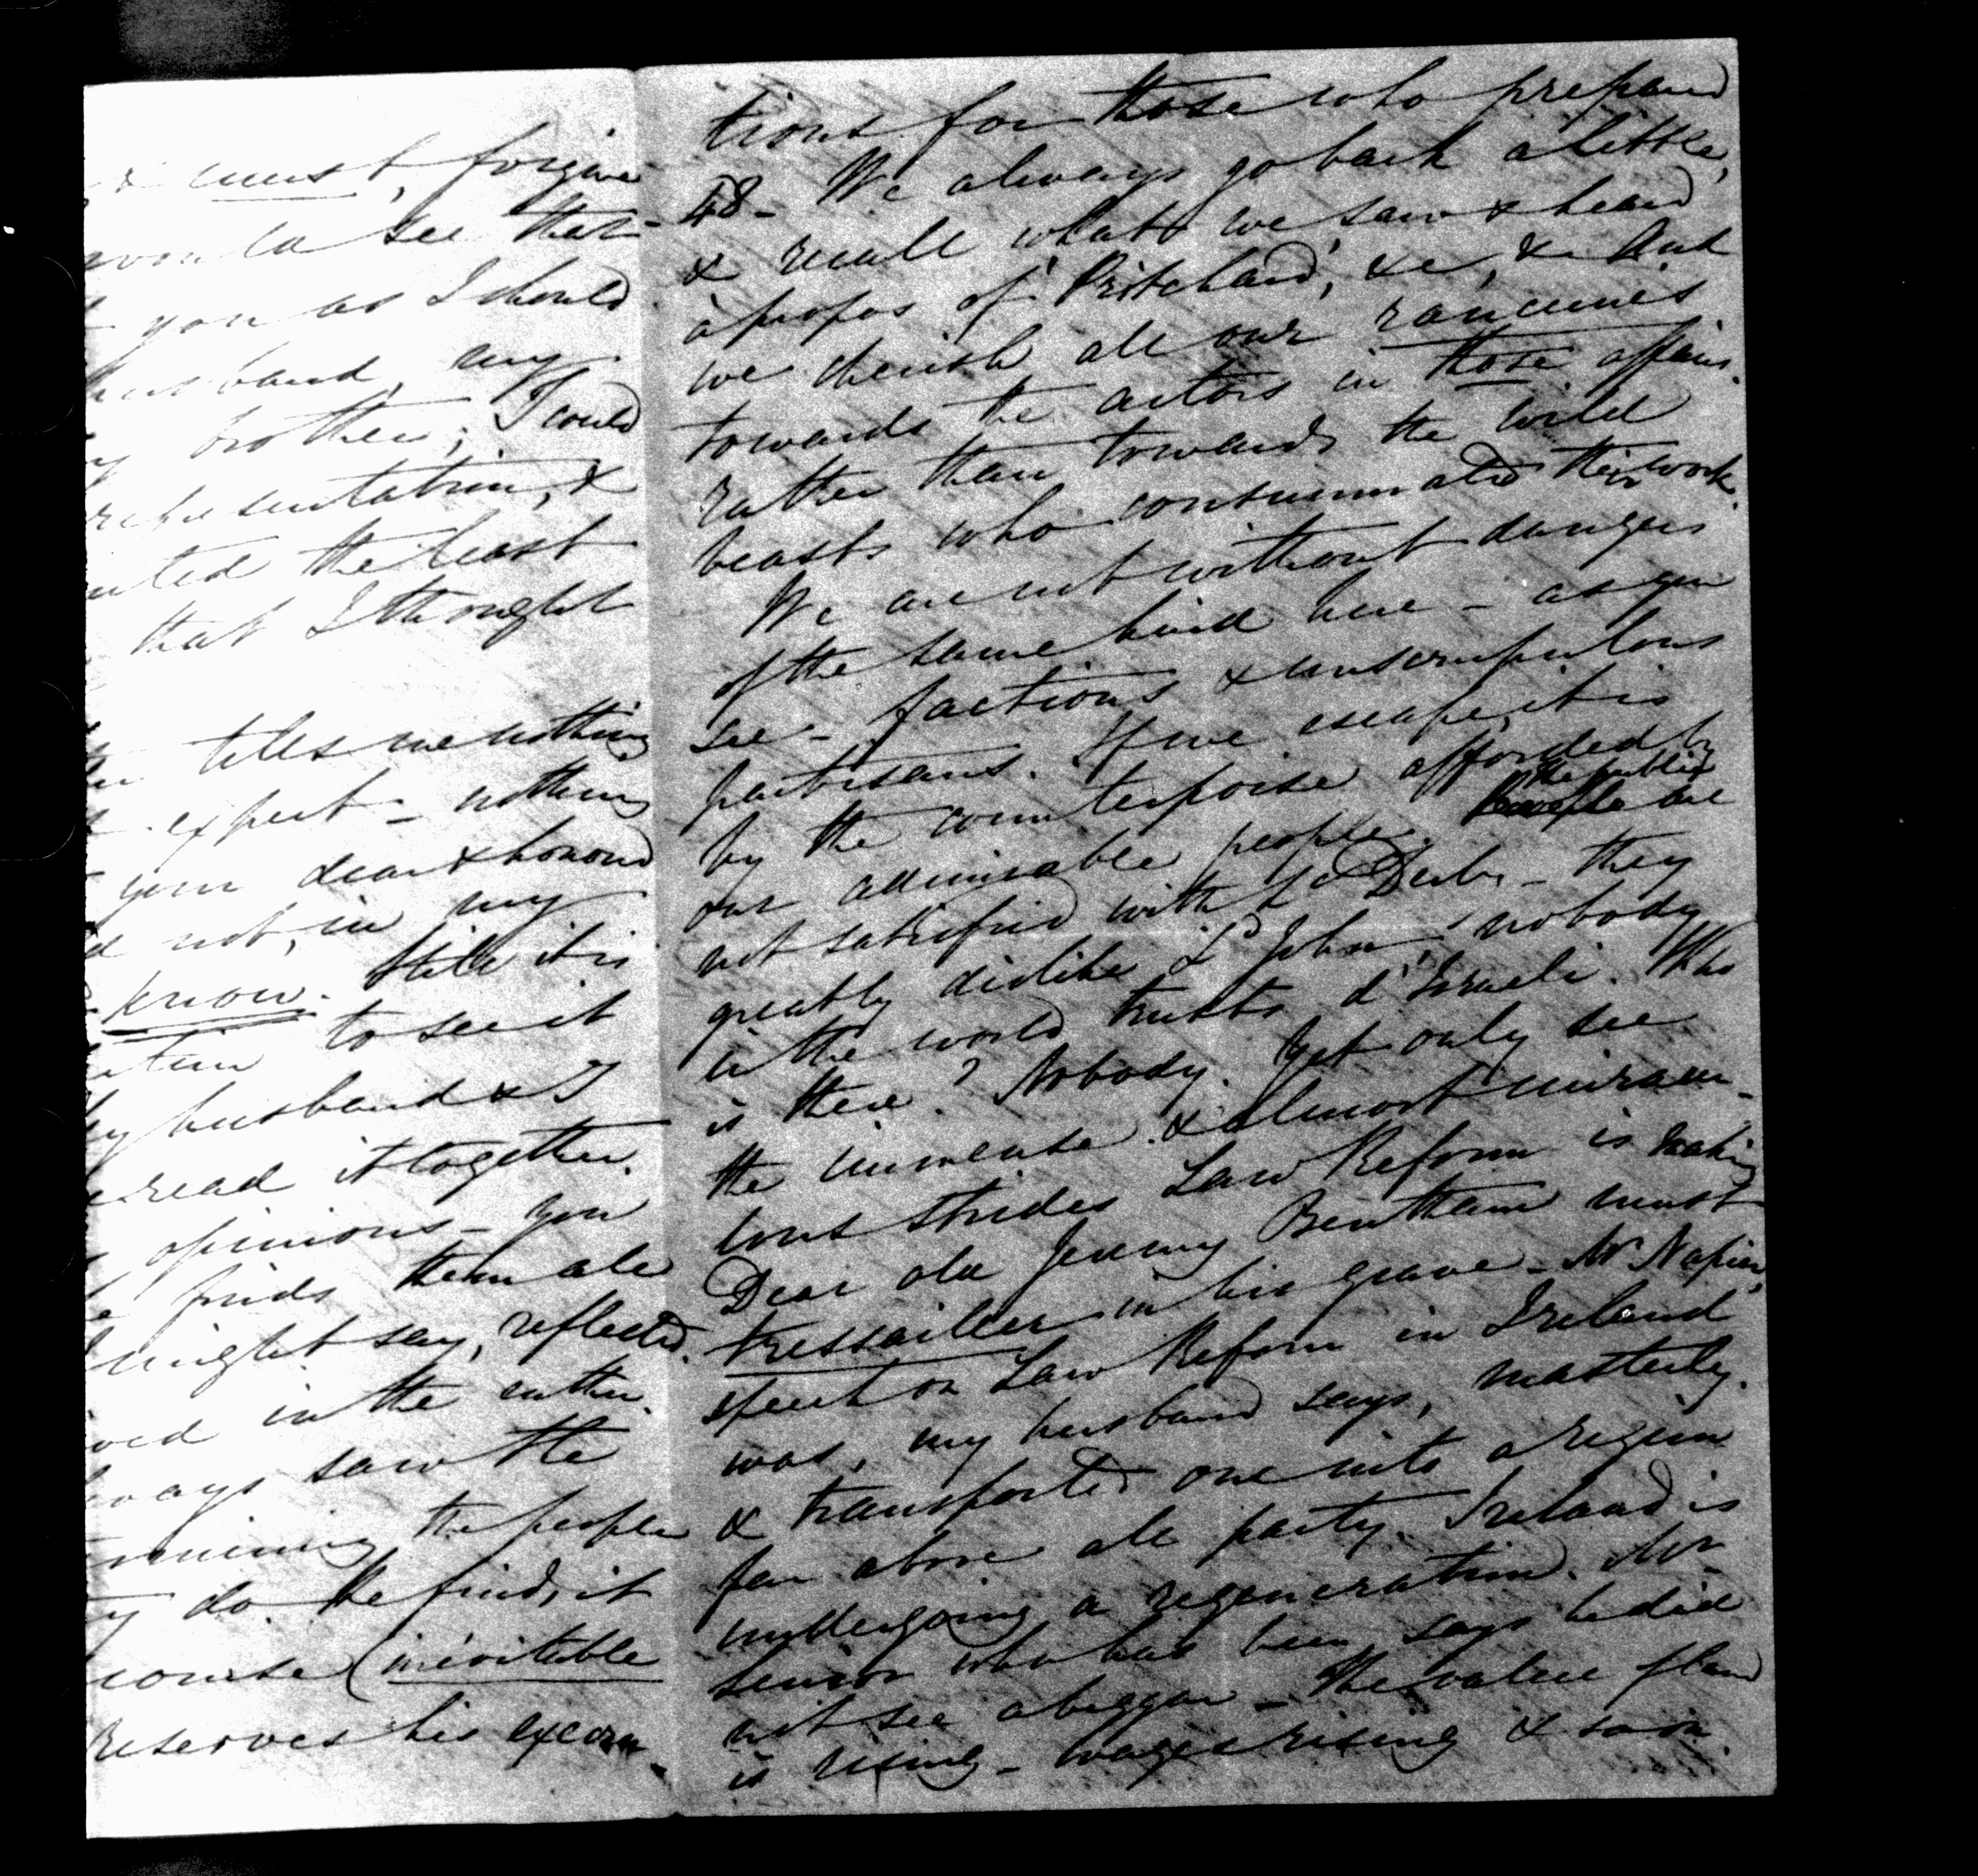 & must, forgive
would see that
you as I should
husband, any
brother; I could
representation, &
the least
that I thought
tells me nothing
expect – nothing
your dear & honoured
not, in my
know. Still it is
to see it
husband & I
read it together.
opinions – you
finds them all
might say, reflected
in the author.
always saw the
the people
do. He finds it
course (inévitable
reserves his execra-
tions for those who prepared
48 – We always go back a little,
& recall what we saw & heard
àpropos of 'Pritchard', &c, &c And
we cherish all our rancunes
towards the actors in those affairs
rather than towards the wild
beasts who consummated their work.
We are not without dangers
of the same kind here – as you
see – factions & unscrupulous
partisans. If we escape, it is
by the counterpoise afforded by
our admirable people. The public are
not satisfied with Ld Derby – they
greatly dislike Ld John, nobody
in the world trusts d'Israeli. Who
is there? Nobody. Yet only see
the immense & almost miracu-
lous strides Law Reform is making
Dear old Jeremy Bentham must
tressaillir in his grave – Mr Napier's
speech on Law Reform in Ireland
was, my husband says, masterly.
& transported one into a region
far above all party. Ireland is
undergoing a regeneration. Mr
Senior who has been, says he did
not see a beggar – The value of land
is rising – wages rising & soon